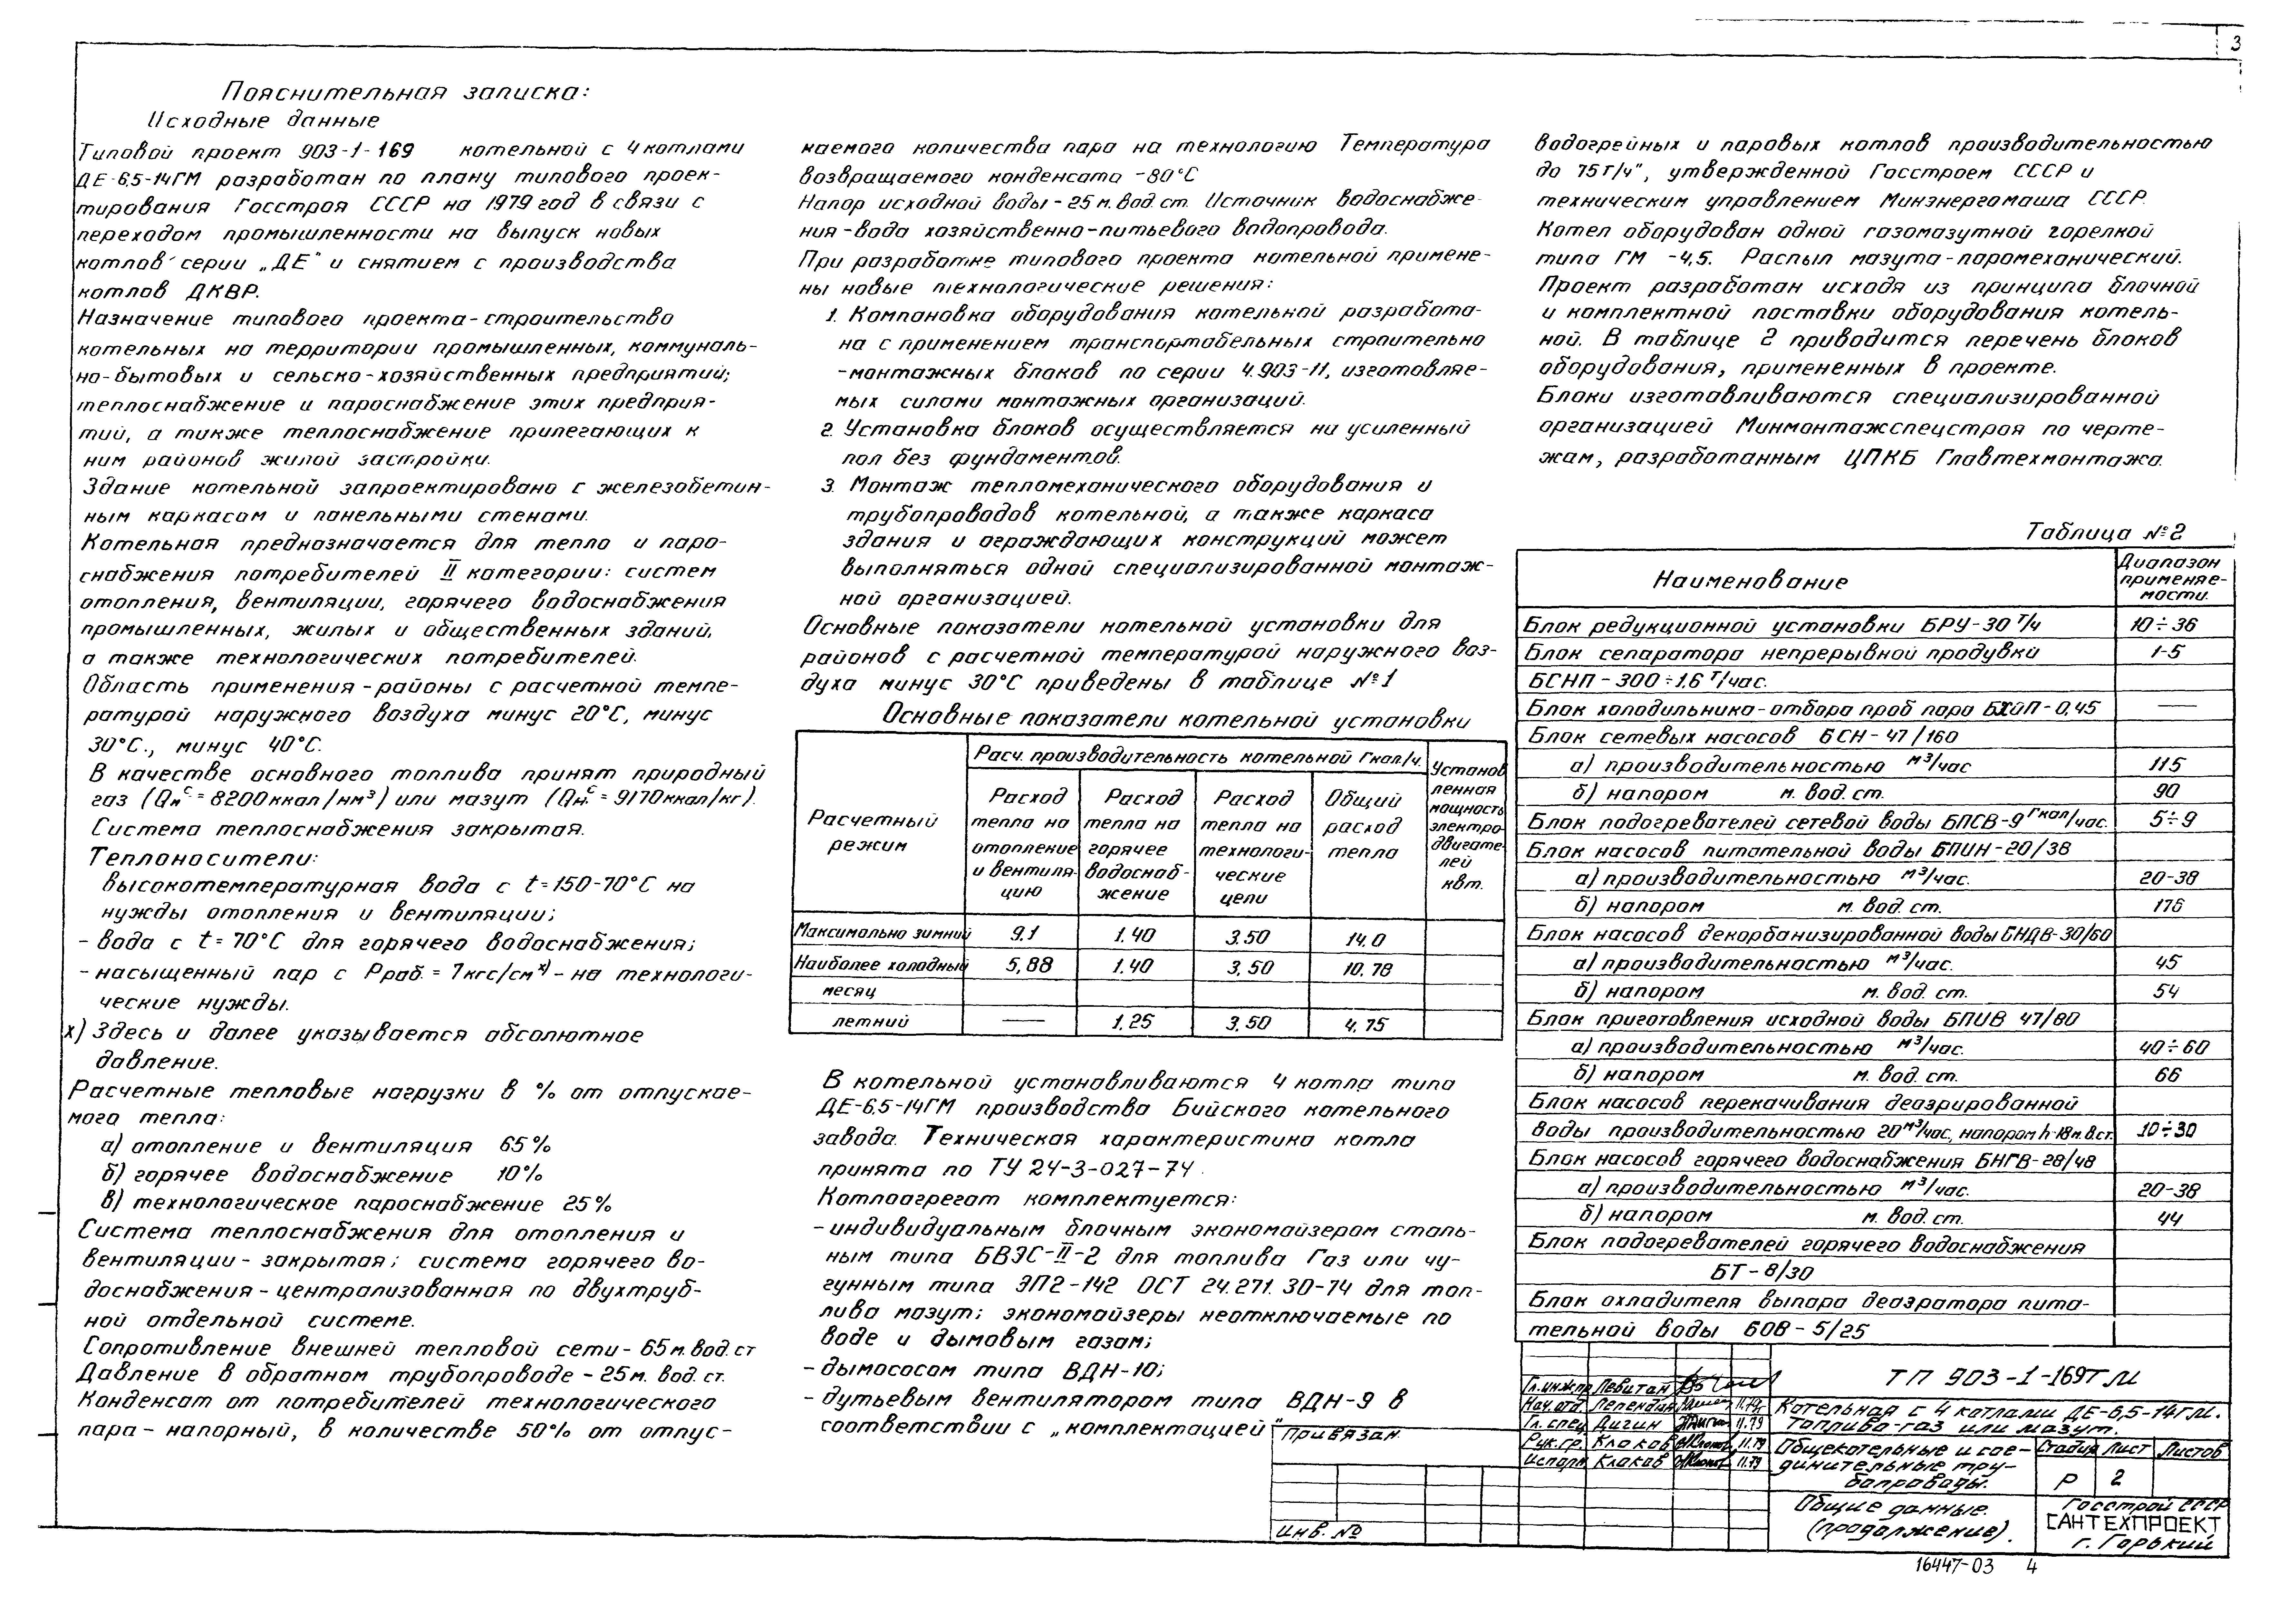 3
Пояснительная записка:
Исходные данные
Типовой проект 903-1-169 котельной с 4 котлами
ДЕ-6,5-14ГМ разработан по плану типового проек-
тирования Госстроя СССР на 1979 год в связи с
переходом промышленности на выпуск новых
котлов серии „ДЕ" и снятием с производства
котлов ДКВР.
Назначение типового проекта-строительство
котельных на территории промышленных, коммуналь-
но-бытовых и сельско-хозяйственных предприятий;
теплоснабжение и пароснабжение этих предприя-
тий, а также теплоснабжение прилегающих к
ним районов жилой застройки.
Здание котельной запроектировано с железобетон-
ным каркасом и панельными стенами.
Котельная предназначается для тепло и паро-
снабжения потребителей II категории: систем
отопления, вентиляции, горячего водоснабжения
промышленных, жилых и общественных зданий,
а также технологических потребителей.
Область применения-районы с расчетной темпе-
ратурой наружного воздуха минус 20°С, минус
30°С., минус 40°С.
В качестве основного топлива принят природный
газ (Qнс = 8200 ккал/нм³) или мазут (Qнс = 9170 ккал/кг).
Система теплоснабжения закрытая.
Теплоносители:
высокотемпературная вода с t=150-70°С на
нужды отопления и вентиляции;
- вода с t=70°С для горячего водоснабжения;
- насыщенный пар с Рраб.= 7кгс/см х) - на технологи-
ческие нужды.
х) Здесь и далее указывается абсолютное
давление.
Расчетные тепловые нагрузки в % от отпускае-
мого тепла:
а) отопление и вентиляция 65%
б) горячее водоснабжение 10%
в) технологическое пароснабжение 25%
Система теплоснабжения для отопления и
вентиляции-закрытая; система горячего во-
доснабжения-централизованная по двухтруб-
ной отдельной системе.
Сопротивление внешней тепловой сети-65м. вод. ст
Давление в обратном трубопроводе-25м. вод. ст.
Конденсат от потребителей технологического
пара-напорный, в количестве 50% от отпус-
каемого количества пара на технологию Температура
возвращаемого конденсата -80°С
Напор исходной воды-25м. вод. ст. Источник водоснабже-
ния-вода хозяйственно-питьевого водопровода.
При разработке типового проекта котельной примене-
ны новые технологические решения:
1. Компановка оборудования котельной разработа-
на с применением транспортабельных строительно
-монтажных блоков по серии 4.903-11, изготовляе-
мых силами монтажных организаций.
2. Установка блоков осуществляется на усиленный
пол без фундаментов.
3. Монтаж тепломеханического оборудования и
трубопроводов котельной, а также каркаса
здания и ограждающих конструкций может
выполняться одной специализированной монтаж-
ной организацией.
Основные показатели котельной установки для
районов с расчетной температурой наружного воз-
духа минус 30°С приведены в таблице №1
Основные показатели котельной установки
Расчетный режим
Расч. производительность котельной Гкал/ч.
Расход тепла на отопление и вентиля-цию
Расход тепла на горячее водоснаб-жение
Расход тепла на технологи-ческие цели
Общий расход тепла
Установ ленная мощность электро-двигате-лей квт.
Максимально зимний 9.1 1.40 3.50 14.0
Наиболее холодный 5,88 1.40 3,50 10,78
месяц
летний — 1.25 3,50 4,75
В котельной устанавливаются 4 котла типа
ДЕ-6,5-14ГМ производства Бийского котельного
завода. Техническая характеристика котла
принята по ТУ 24-3-027-74.
Котлоагрегат комплектуется:
- индивидуальным блочным экономайзером сталь-
ным типа БВЭС-II-2 для топлива Газ или чу-
гунным типа ЭП2-142 ОСТ 24.271.30-74 для топ-
лива мазут; экономайзеры неотключаемые по
воде и дымовым газам;
- дымососом типа ВДН-10;
- дутьевым вентилятором типа ВДН-9 в
соответствии с „комплектацией
водогрейных и паровых котлов производительностью
до 75т/ч", утвержденной Госстроем СССР и
техническим управлением Минэнергомаша СССР.
Котел оборудован одной газомазутной горелкой
типа ГМ -4,5. Распыл мазута-паромеханический.
Проект разработан исходя из принципа блочной
и комплектной поставки оборудования котель-
ной. В таблице 2 приводится перечень блоков
оборудования, примененных в проекте.
Блоки изготавливаются специализированной
организацией Минмонтажспецстроя по черте-
жам, разработанным ЦПКБ Главтехмонтажа.
Таблица №2
Наименование Диапазон применяе-мости.
Блок редукционной установки БРУ-30 т/ч 10÷36
Блок сепаратора непрерывной продувки 1-5
БСНП-300÷1,6 т/час.
Блок холодильника-отбора проб пара БХОП-0,45 —
Блок сетевых насосов БСН-47/160
а) производительностью м³/час 115
б) напором м. вод. ст. 90
Блок подогревателей сетевой воды БПСВ-9 Гкал/час. 5÷9
Блок насосов питательной воды БПИН-20/38
а) производительностью м³/час. 20-38
б) напором м. вод. ст. 176
Блок насосов декорбанизированной воды БНДВ-30/60
а) производительностью м³/час. 45
б) напором м. вод. ст. 54
Блок приготовления исходной воды БПИВ 47/80
а) производительностью м³/час. 40÷60
б) напором м. вод. ст. 66
Блок насосов перекачивания деаэрированной
воды производительностью 20м³/час, напором h-18м.в.ст. 10÷30
Блок насосов горячего водоснабжения БНГВ-28/48
а) производительностью м³/час. 20-38
б) напором м. вод. ст. 44
Блок подогревателей горячего водоснабжения
БТ-8/30
Блок охладителя выпара деаэратора пита-
тельной воды БОВ-5/25
Привязан
Инв. №
Гл.инж.пр Левитан
Нач.отд. Лепендин 11.79г
Гл. спец Дигин 11.79
Рук.гр. Клоков 11.79
Исполн Клоков 11.79
ТП 903-1-169 Т.М
Котельная с 4 котлами ДЕ-6,5-14Г.М.
Топливо-газ или мазут.
Общекотельные и сое-
динительные тру-
бопроводы.
Стадия Лист Листов
Р 2
Общие данные.
(продолжение).
Госстрой СССР
САНТЕХПРОЕКТ
г. Горький
16447-03 4